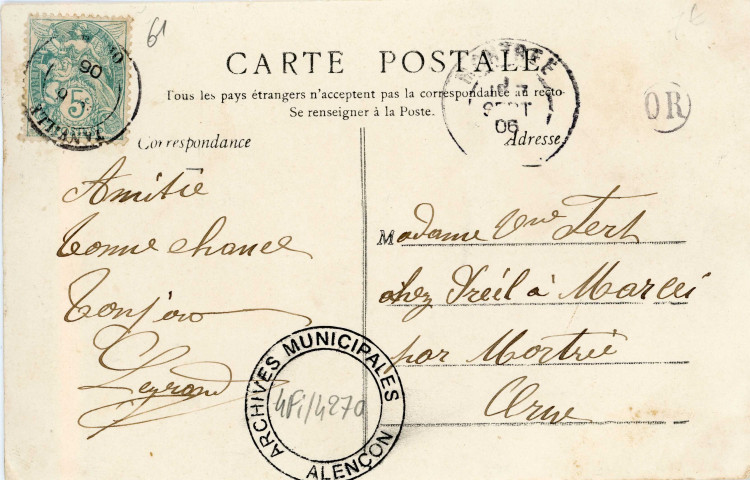 61
CARTE POSTALE
Tous les pays étrangers n'acceptent pas la correspondance au recto
Se renseigner à la Poste.
Correspondance
Adresse
5
MORTREE
SEPT
06
OR
Amitié
bonne chance
bonjour
Legrand
Madame Vve
chez à Marcei
par Mortrée
Orne
ARCHIVES MUNICIPALES
4Fi/4270
ALENÇON